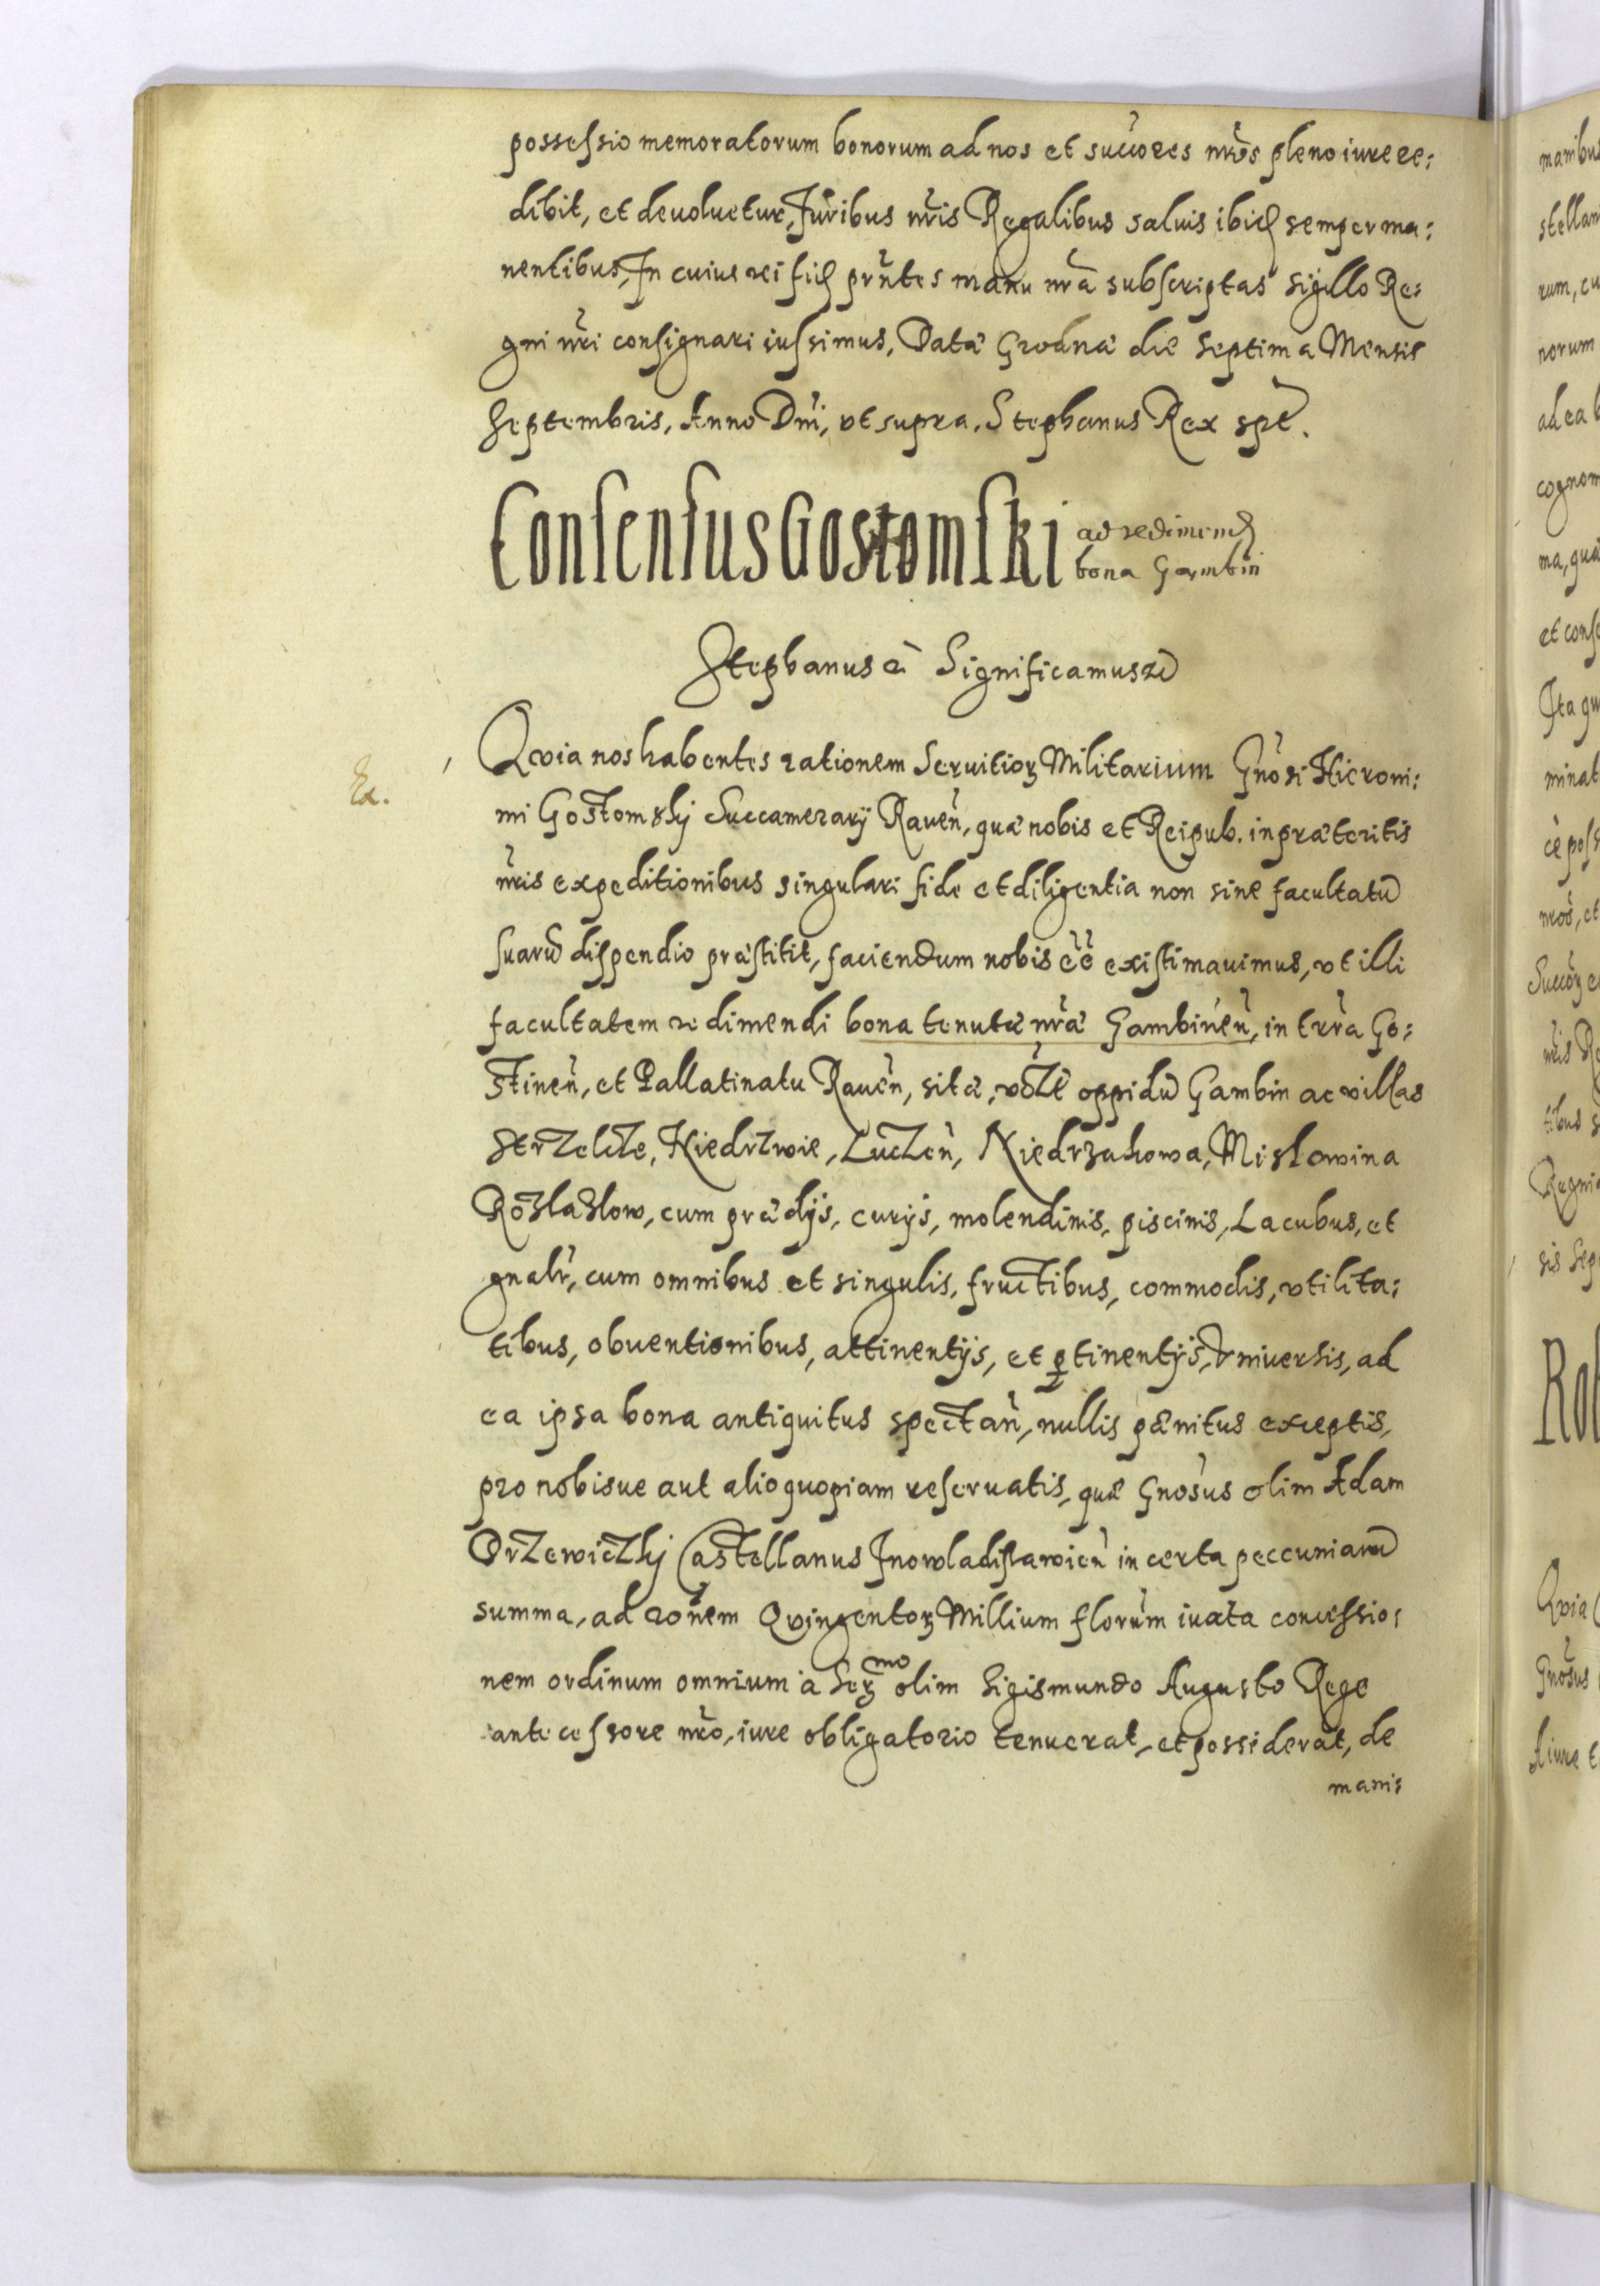 possessio memoratorum bonorum ad nos et succores nros pleno iure re:
dibit, et deuoluetur, Juribus nris Regalibus saluis ibid semper ma:
nentibus, In cuius rei fid prntes manu nra subscriptas sigillo Re:
gni nri consignari iussimus, Datæ Grodnæ die septima Mensis
Septembris, Anno Dni, vt supra, Stephanus Rex spt.
Consensus Gostomski ad redimend
bona Gambin
Stephanus etc Significamus etc
Ex.
Qvia nos habentes rationem Seruitioꝝ Militarium Gnosi Hieroni:
mi Gostomskÿ Succamerarÿ Raueñ, quæ nobis et Reipub. in præteritis
nris expeditionibus singulari fide et diligentia non sine facultatū
suarū dispendio præstitit, faciendum nobis ee existimauimus, vt illi
facultatem redimendi bona tenutæ nræ Gambineñ, in trra Go:
stineñ, et Pallatinatu Raueñ, sita, vdzt oppidū Gambin ac villas
Strzelcze, Kiedrzwie, Luczeñ, Niedrzakowa, Mislowina
Rozslaslow, cum prædÿs, curÿs, molendinis, piscinis, Lacubus, et
gnalr, cum omnibus et singulis, fructibus, commodis, vtilita:
tibus, obuentionibus, attinentÿs, et ꝑtinentÿs, vniuersis, ad
ea ipsa bona antiquitus spectañ, nullis pænitus exceptis,
pro nobisue aut alio quopiam reseruatis, quæ Gnosus olim Adam
Orzewiczkÿ Castellanus Inowladislawieñ in certa peccuniarū
summa, ad ronem Qvingentoꝝ Millium florum iuxta concessio:
nem ordinum omnium à Seꝝmo olim Sigismundo Augusto Rege
antecessore nro, iure obligatorio tenuerat, et possiderat, de
manis